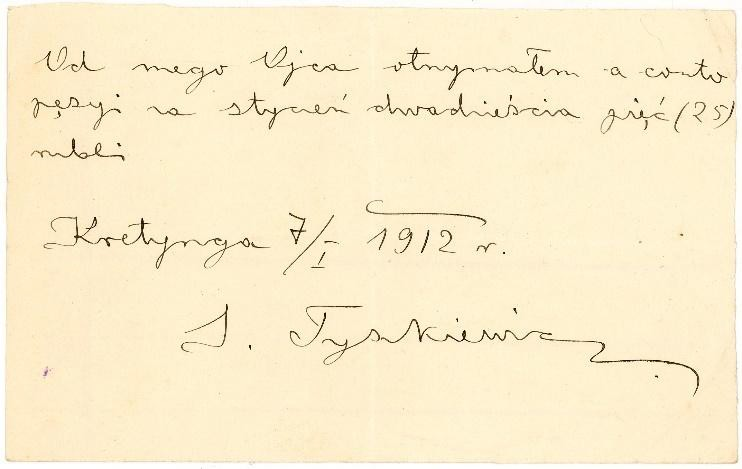 Od mego Ojca otrzymałem a conto
pęsyi za styczeń dwadzieścia pięć (25)
rubli
Kretynga 7/I 1912 r.
S. Tyszkiewicz